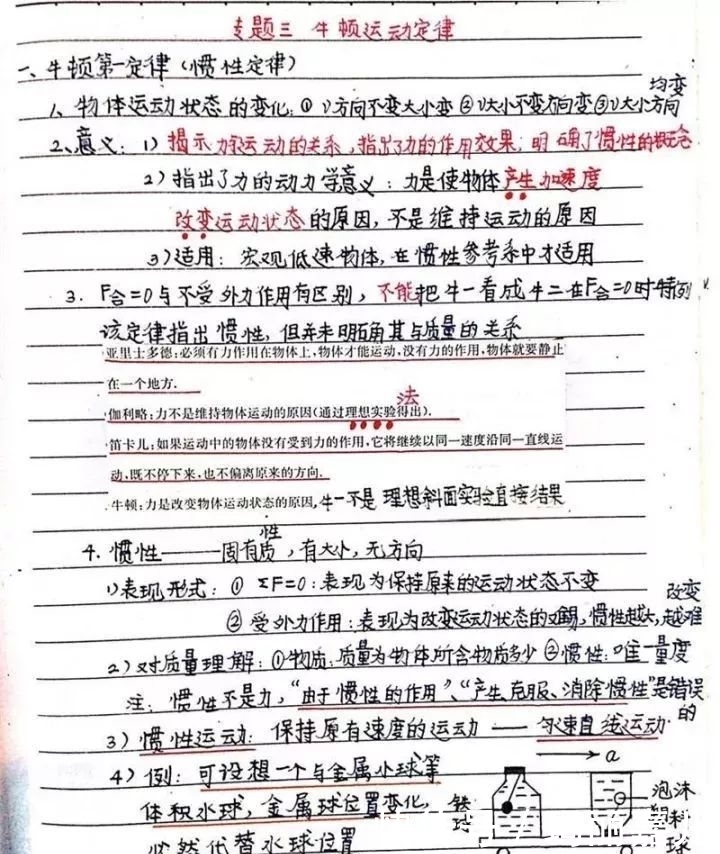 专题三 牛顿运动定律
一、牛顿第一定律(惯性定律)
1、物体运动状态的变化:① v方向不变大小变 ② v大小不变方向变 ③ v大小方向均变
2、意义: 1) 揭示力和运动的关系,指出了力的作用效果;明确了惯性的概念
2) 指出了力的动力学意义:力是使物体产生加速度
改变运动状态的原因,不是维持运动的原因
3) 适用: 宏观低速物体,在惯性参考系中才适用
3. F合=0与不受外力作用有区别,不能把牛一看成牛二在F合=0时特例
该定律指出惯性,但并未明确其与质量的关系
亚里士多德:必须有力作用在物体上,物体才能运动,没有力的作用,物体就要静止
在一个地方.
伽利略:力不是维持物体运动的原因(通过理想实验法得出).
笛卡儿:如果运动中的物体没有受到力的作用,它将继续以同一速度沿同一直线运
动,既不停下来,也不偏离原来的方向.
牛顿:力是改变物体运动状态的原因,牛一不是理想斜面实验直接结果
4. 惯性——固有性质,有大小,无方向
1)表现形式: ① ΣF=0:表现为保持原来的运动状态不变
② 受外力作用:表现为改变运动状态的难易,惯性越大,越难改变
2) 对质量理解:①物质:质量为物体所含物质多少 ②惯性:唯一量度
注: 惯性不是力,"由于惯性的作用"、"产生、克服、消除惯性"是错误的
3) 惯性运动: 保持原有速度的运动 —— 匀速直线运动
4) 例: 可设想一个与金属小球等
a
体积水球,金属球位置变化,
铁球
泡沫塑料球
必然代替水球位置